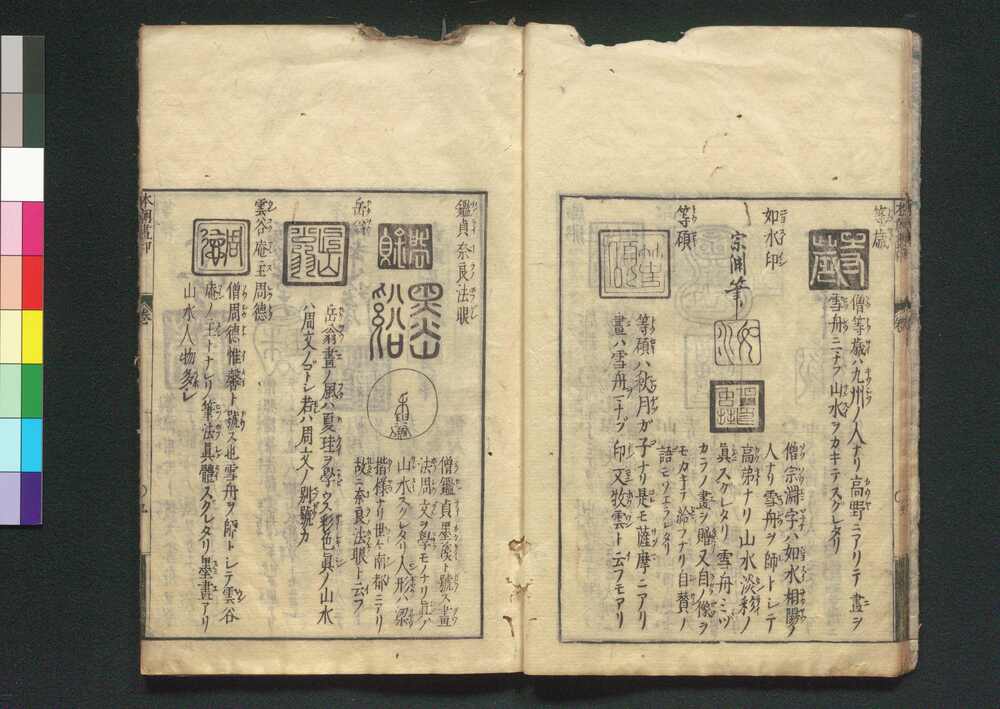 等歳
僧等歳ハ九州ノ人ナリ高野ニアリテ畫ヲ
雪舟ニナラブ山水ヲカキテスグレタリ
如水印
宗渊筆
僧宗淵字ハ如水相陽ノ
人ナリ雪舟ヲ師トシテ
高弟ナリ山水淡彩ノ
眞スグレタリ雪舟ミヅ
カラノ畫ヲ贈又自ノ像ヲ
モカキテ給フナリ自賛ノ
語モソエラレタリ
等碩
等碩ハ秋月ガ子ナリ是モ薩摩ニアリ
畫ハ雪舟ニナラブ印又牧雲ト云フモアリ
鑑貞奈良法眼
僧鑑貞墨溪ト號ス畫
法周文ヲ學モノナリ
山水スグレタリ人形ハ梁
楷様ナリ世ニ南都ニアリ
故ニ奈良法眼ト云フ
岳翁
岳翁畫ノ風ハ夏珪ヲ學ウス彩色眞ノ山水
ハ周文ノゴトシ若ハ周文ノ別號カ
雲谷庵主周德
僧周德惟馨ト號ス也雪舟ヲ師トシテ雲谷
庵ノ主トナレリ筆法眞體スグレタリ墨畫アリ
山水人物多シ
本朝畫印